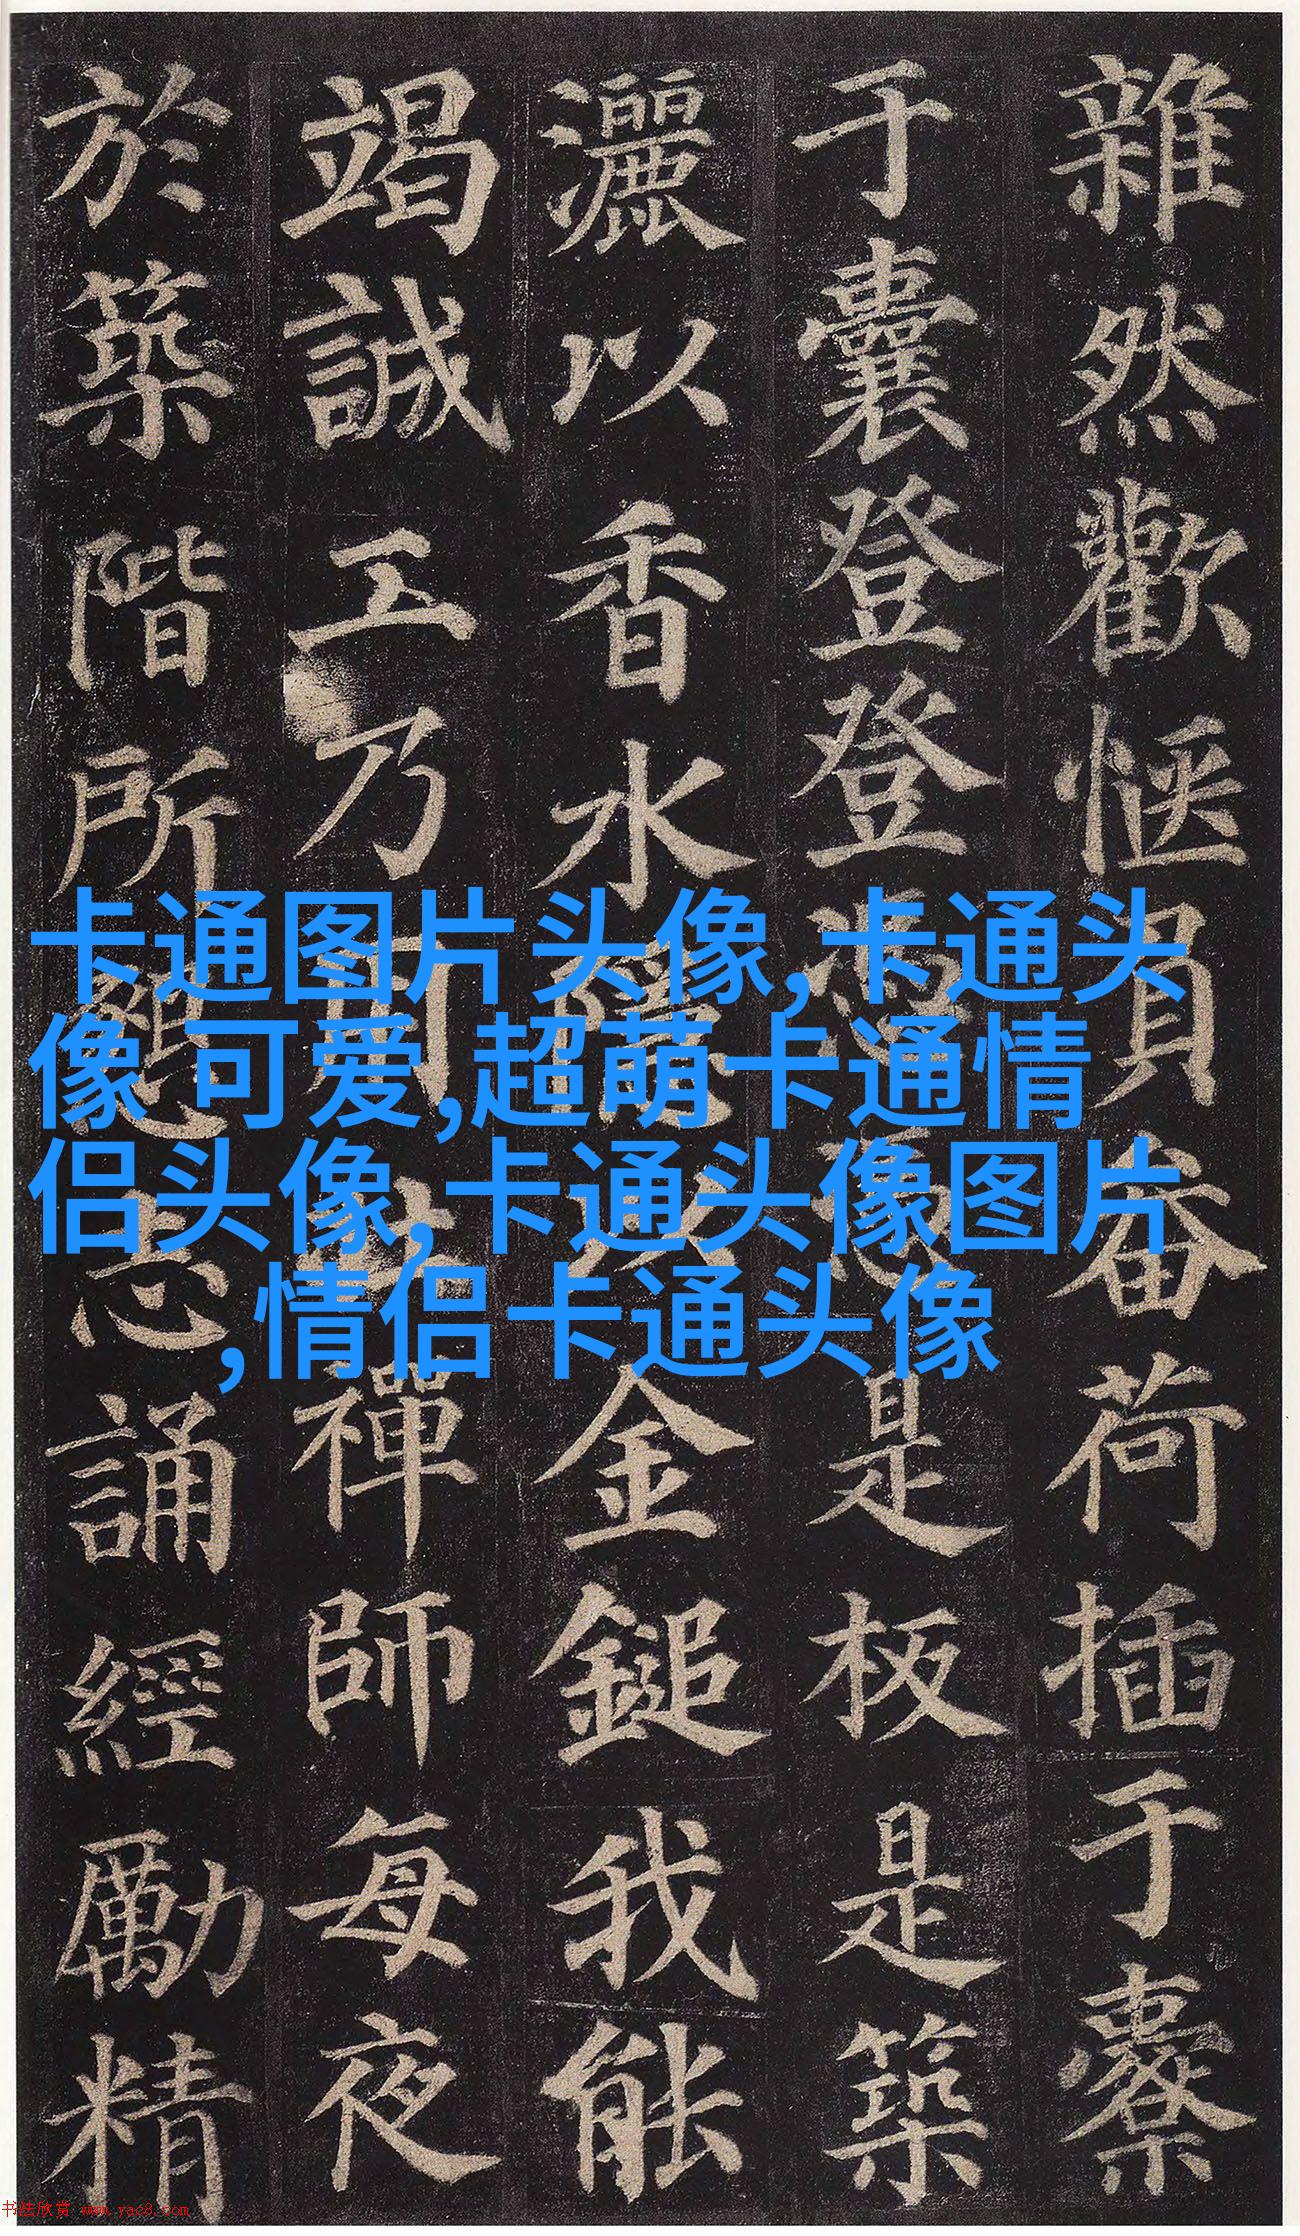 雜然歡愜負畚荷插于橐
于囊登登憑憑是板是築
灑以香水隱以金鎚我能
竭誠工乃用壯禪師每夜
於築階所懇志誦經勵精
卡通图片头像,卡通头
像 可爱,超萌卡通情
侣头像,卡通头像图片
,情侣卡通头像
书法欣赏 www.yac8.com